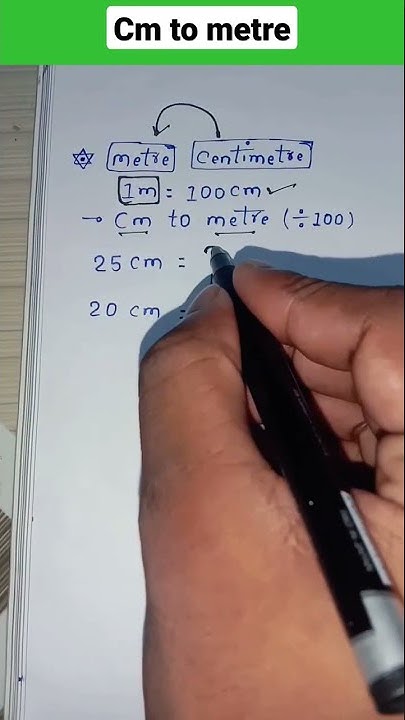 Cm to metre
metre centimetre
1m = 100cm ✓
→ Cm to metre (÷100)
25 cm =
20 cm =